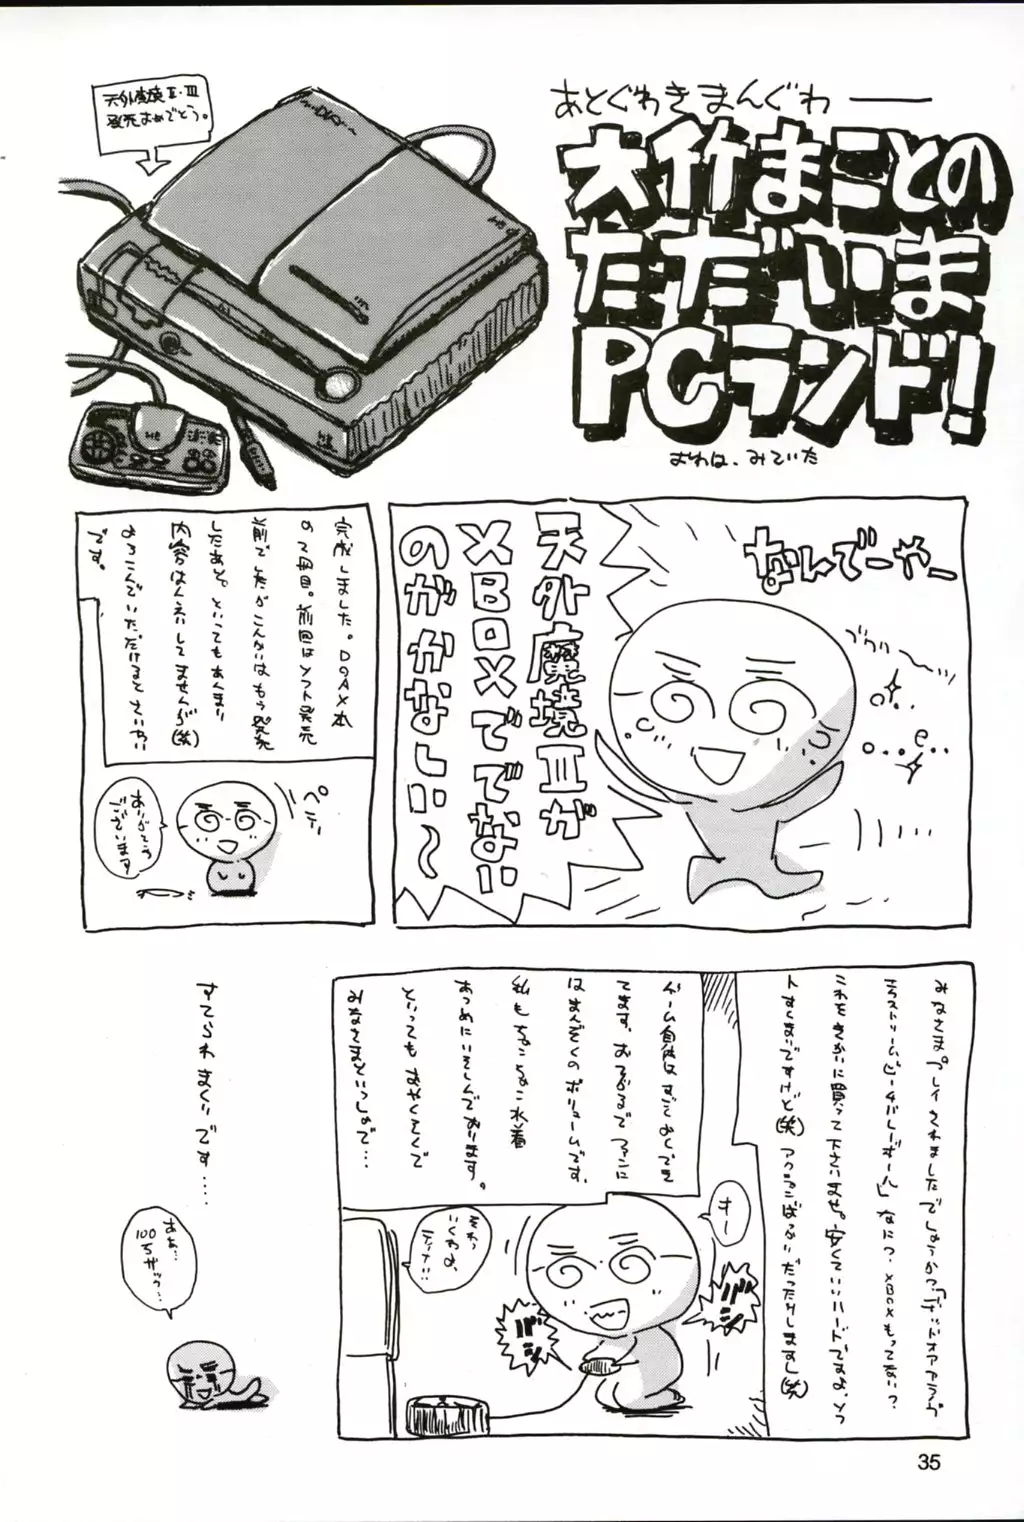 あとぐわきまんぐわ――
大竹まことの
ただいま
PCランド!
おれは、みていた
天外魔境Ⅱ・Ⅲ
発売おめでとう。
なんでーやー
天外魔境Ⅲが
XBOXででない
のがかなしい〜
完成しました。DOAX本
の2冊目。前回はソフト発売
前でしたがこんかいはもう発売
したあと。といってもあんまり
内容はんえいしてませんが(笑)
よろこんでいただけるとさいわい
です。
ペコ
ありがとう
ございます
みなさまプレイされましたでしょうか?「デッドオアアライヴ
エクストリームビーチバレーボール」なに?XBOXもってない?
これをきかいに買って下さいませ。安くていいハードですよ。ソフ
トすくないですけど(笑)アクションばっかだったりしますし(笑)
ゲーム自体はすごくよくでき
てます。おふろでファンに
はまんぞくのボリュームです。
私もちょこちょこ水着
あつめにいそしんでおります。
といってもおやくそくで
みなさまといっしょで…
すてられまくりです....
あぁ…
100万ザック…